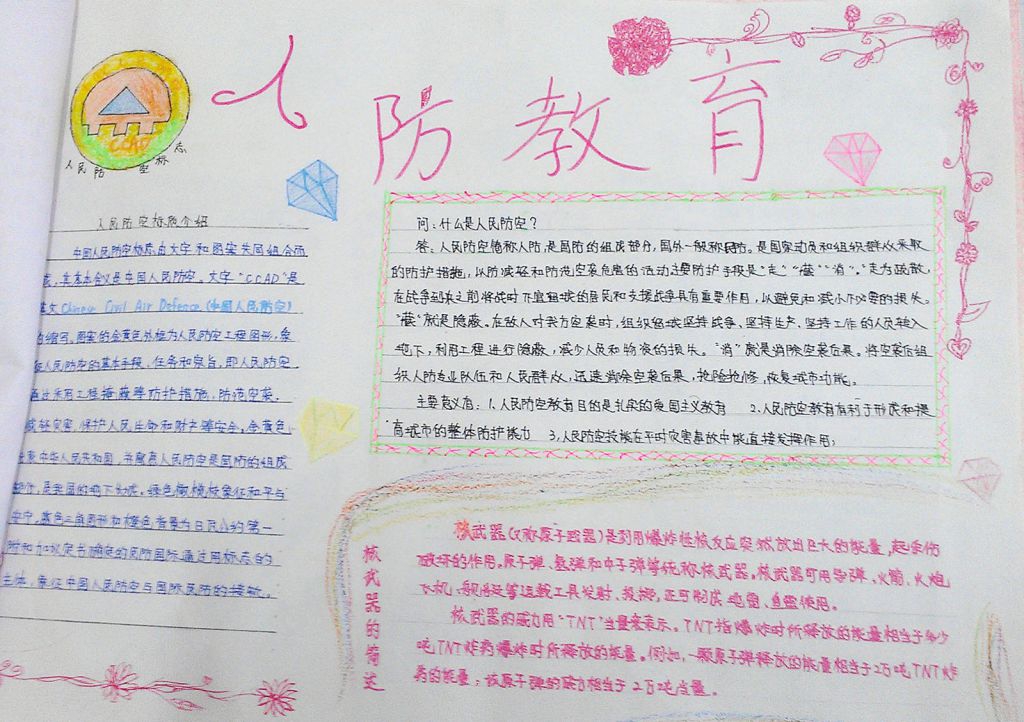 人防教育
CCAD
人民防空标志
人民防空标志介绍
中国人民防空标志由文字和图案共同组合而
成,其基本含义是中国人民防空。文字"CCAD"是
英文Chinese Civil Air Defence(中国人民防空)
的缩写,图案的金黄色外框为人民防空工程图形,象
征人民防空的基本手段,任务和宗旨,即人民防空
通过采用工程掩蔽等防护措施,防范空袭,
减轻灾害,保护人民生命和财产等安全。金黄色
代表中华人民共和国,并寓意人民防空是国防的组成
部分,是我国的地下长城。绿色橄榄枝象征和平与
蓝色三角图形和橙色背景为日内瓦公约第一
附加议定书确定的民防国际通用标志的
主体,象征中国人民防空与国际民防的接轨。
问:什么是人民防空?
答:人民防空简称人防,是国防的组成部分,国外一般称民防。是国家动员和组织群众采取
的防护措施,以防减轻和防范空袭危害的活动主要防护手段是"走""藏""消"。"走"为疏散,
在战争到来之前将战时不宜留城的居民和支援战争具有重要作用,以避免和减小不必要的损失。
"藏"就是隐蔽。在敌人对我方空袭时,组织留城坚持战争、坚持生产、坚持工作的人员转入
地下,利用工程进行隐蔽,减少人员和物资的损失。"消"就是消除空袭后果。将空袭后组
织人防专业队伍和人民群众,迅速消除空袭后果,抢险抢修,恢复城市功能。
主要意义有:1,人民防空教育目的是扎实的爱国主义教育 2.人民防空教育有利于形成和提
高城市的整体防护能力 3,人民防空技能在平时灾害事故中能直接发挥作用;
核武器的简述
核武器(又称原子武器)是利用爆炸性核反应突然放出巨大的能量,起杀伤
破坏的作用。原子弹、氢弹和中子弹等统称核武器。核武器可用导弹、火箭、火炮
飞机、舰艇等运载工具发射、投掷,还可制成地雷、鱼雷使用。
核武器的威力用"TNT"当量来表示。TNT指爆炸时所释放的能量相当于多少
吨TNT炸药爆炸时所释放的能量。例如,一颗原子弹释放的能量相当于2万吨TNT炸
药的能量;该原子弹的威力相当于2万吨当量。